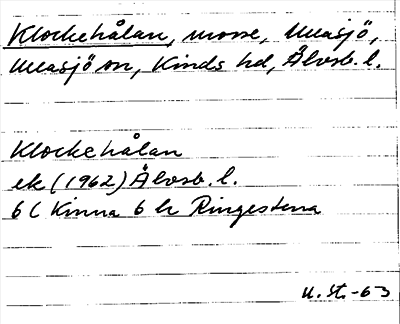 Klockehålan, mosse, Mmasjö,
Mmasjö sn, Kinds hd, Älvsb. l.
Klockehålan
ek (1962) Älvsb. l.
6 C Kinna 6 h Ringestena
U. St. -63